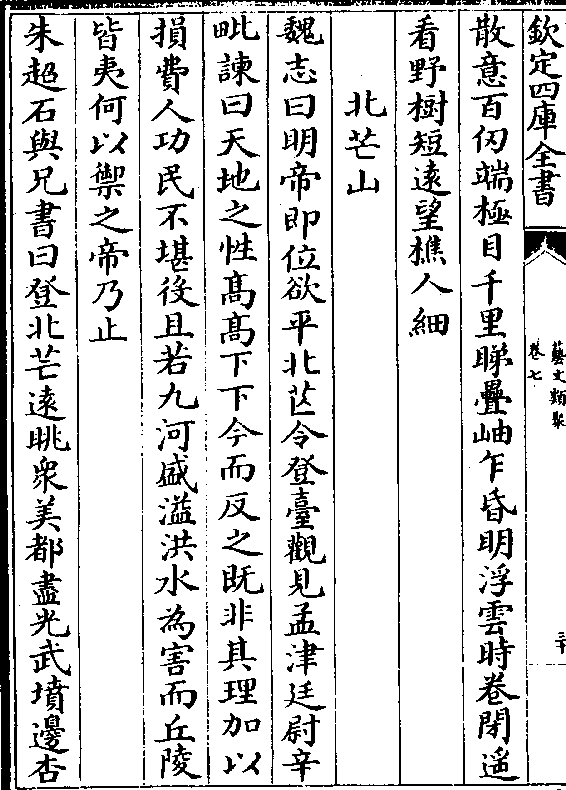 欽定四庫全書
藝文類聚
卷七
二十
散意百仞端極目千里睇疊岫乍昏明浮雲時卷閉遥
看野樹短遠望樵人細
北芒山
魏志曰明帝即位欲平北芒令登臺觀見孟津廷尉辛
毗諫曰天地之性髙髙下下今而反之既非其理加以
損費人功民不堪役且若九河盛溢洪水為害而丘陵
皆夷何以禦之帝乃止
朱超石與兄書曰登北芒遠眺衆美都盡光武墳邊杏